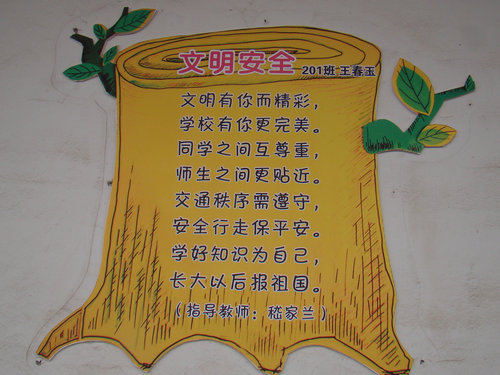 文明安全 201班 王春玉
文明有你而精彩，
学校有你更完美。
同学之间互尊重，
师生之间更贴近。
交通秩序需遵守，
安全行走保平安。
学好知识为自己，
长大以后报祖国。
（指导教师：嵇家兰）